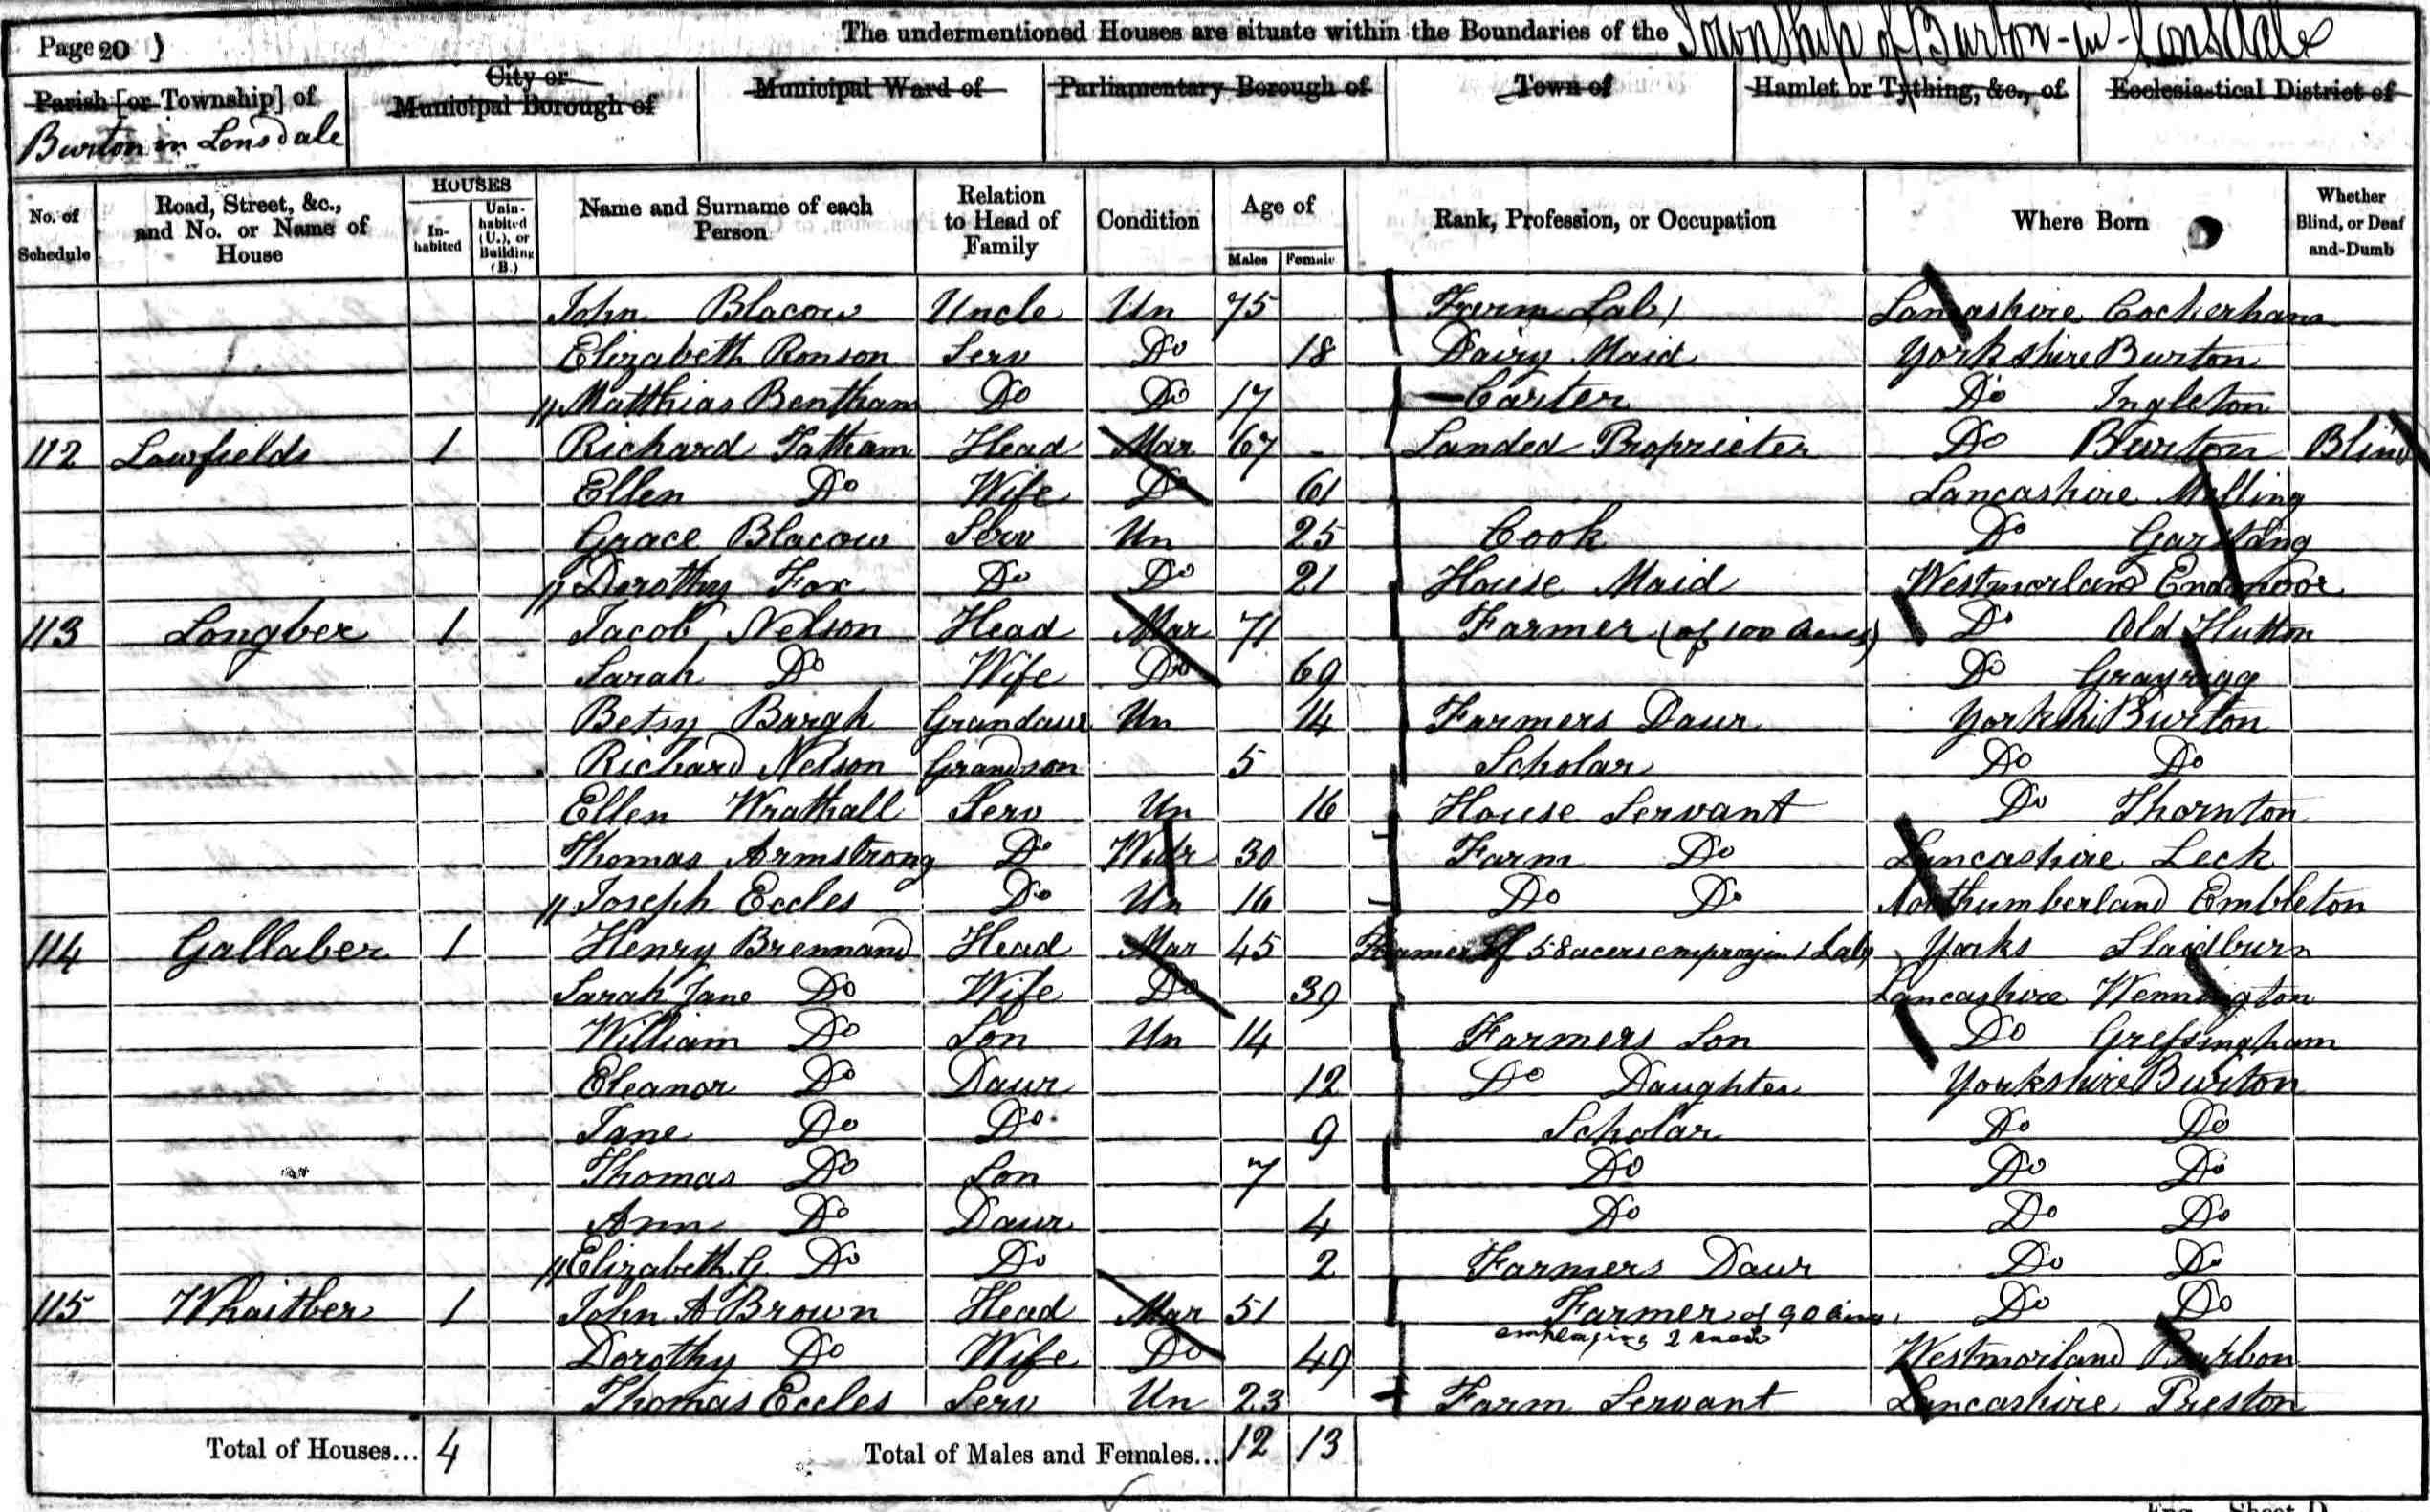 Page 20 ) The undermentioned Houses are situate within the Boundaries of the Township of Burton-in-Lonsdale
Parish [or Township] of City or Municipal Borough of Municipal Ward of Parliamentary Borough of Town of Hamlet or Tything, &c., of Ecclesiastical District of
Burton in Lonsdale
No. of Schedule Road, Street, &c., and No. or Name of House HOUSES In-habited Unin-habited (U.), or Building (B.) Name and Surname of each Person Relation to Head of Family Condition Age of Males Female Rank, Profession, or Occupation Where Born Whether Blind, or Deaf and-Dumb
John Blacow Uncle Un 75 Farm Lab Lancashire Cockerham
Elizabeth Ronson Serv Do 18 Dairy Maid Yorkshire Burton
" Matthias Bentham Do Do 17 Carter Do Ingleton
112 Lowfields 1 Richard Tatham Head Mar 67 - Landed Proprieter Do Burton Blind
Ellen Do Wife Do 61 Lancashire Melling
Grace Blacow Serv Un 25 Cook Do Garstang
" Dorothy Fox Do Do 21 House Maid Westmorland Endmoor
113 Longber 1 Jacob Nelson Head Mar 71 Farmer (of 100 Acres) Do Old Hutton
Sarah Do Wife Do 69 Do Grayrigg
Betsy Bargh Grandaur Un 14 Farmers Daur Yorkshi Burton
Richard Nelson Grandson 5 Scholar Do Do
Ellen Wrathall Serv Un 16 House Servant Do Thornton
Thomas Armstrong Do Widr 30 Farm Do Lancashire Leck
" Joseph Eccles Do Un 16 Do Do Northumberland Embleton
114 Gallaber 1 Henry Brennand Head Mar 45 Framer of 58 acers 1 Lab Yorks Slaidburn
Sarah Jane Do Wife Do 39 Lancashire Wennington
William Do Son Un 14 Farmers Son Do Gressingham
Eleanor Do Daur 12 Do Daughter Yorkshire Burton
Jane Do Do 9 Scholar Do Do
Thomas Do Son 7 Do Do Do
Ann Do Daur 4 Do Do Do
" Elizabeth G Do Do 2 Farmers Daur Do Do
115 Whaitber 1 John A Brown Head Mar 51 Farmer of 90 Do Do
Dorothy Do Wife Do 49 employing 2 men Westmorland Barbon
Thomas Eccles Serv Un 23 Farm Servant Lancashire Preston
Total of Houses... 4 Total of Males and Females... 12 13